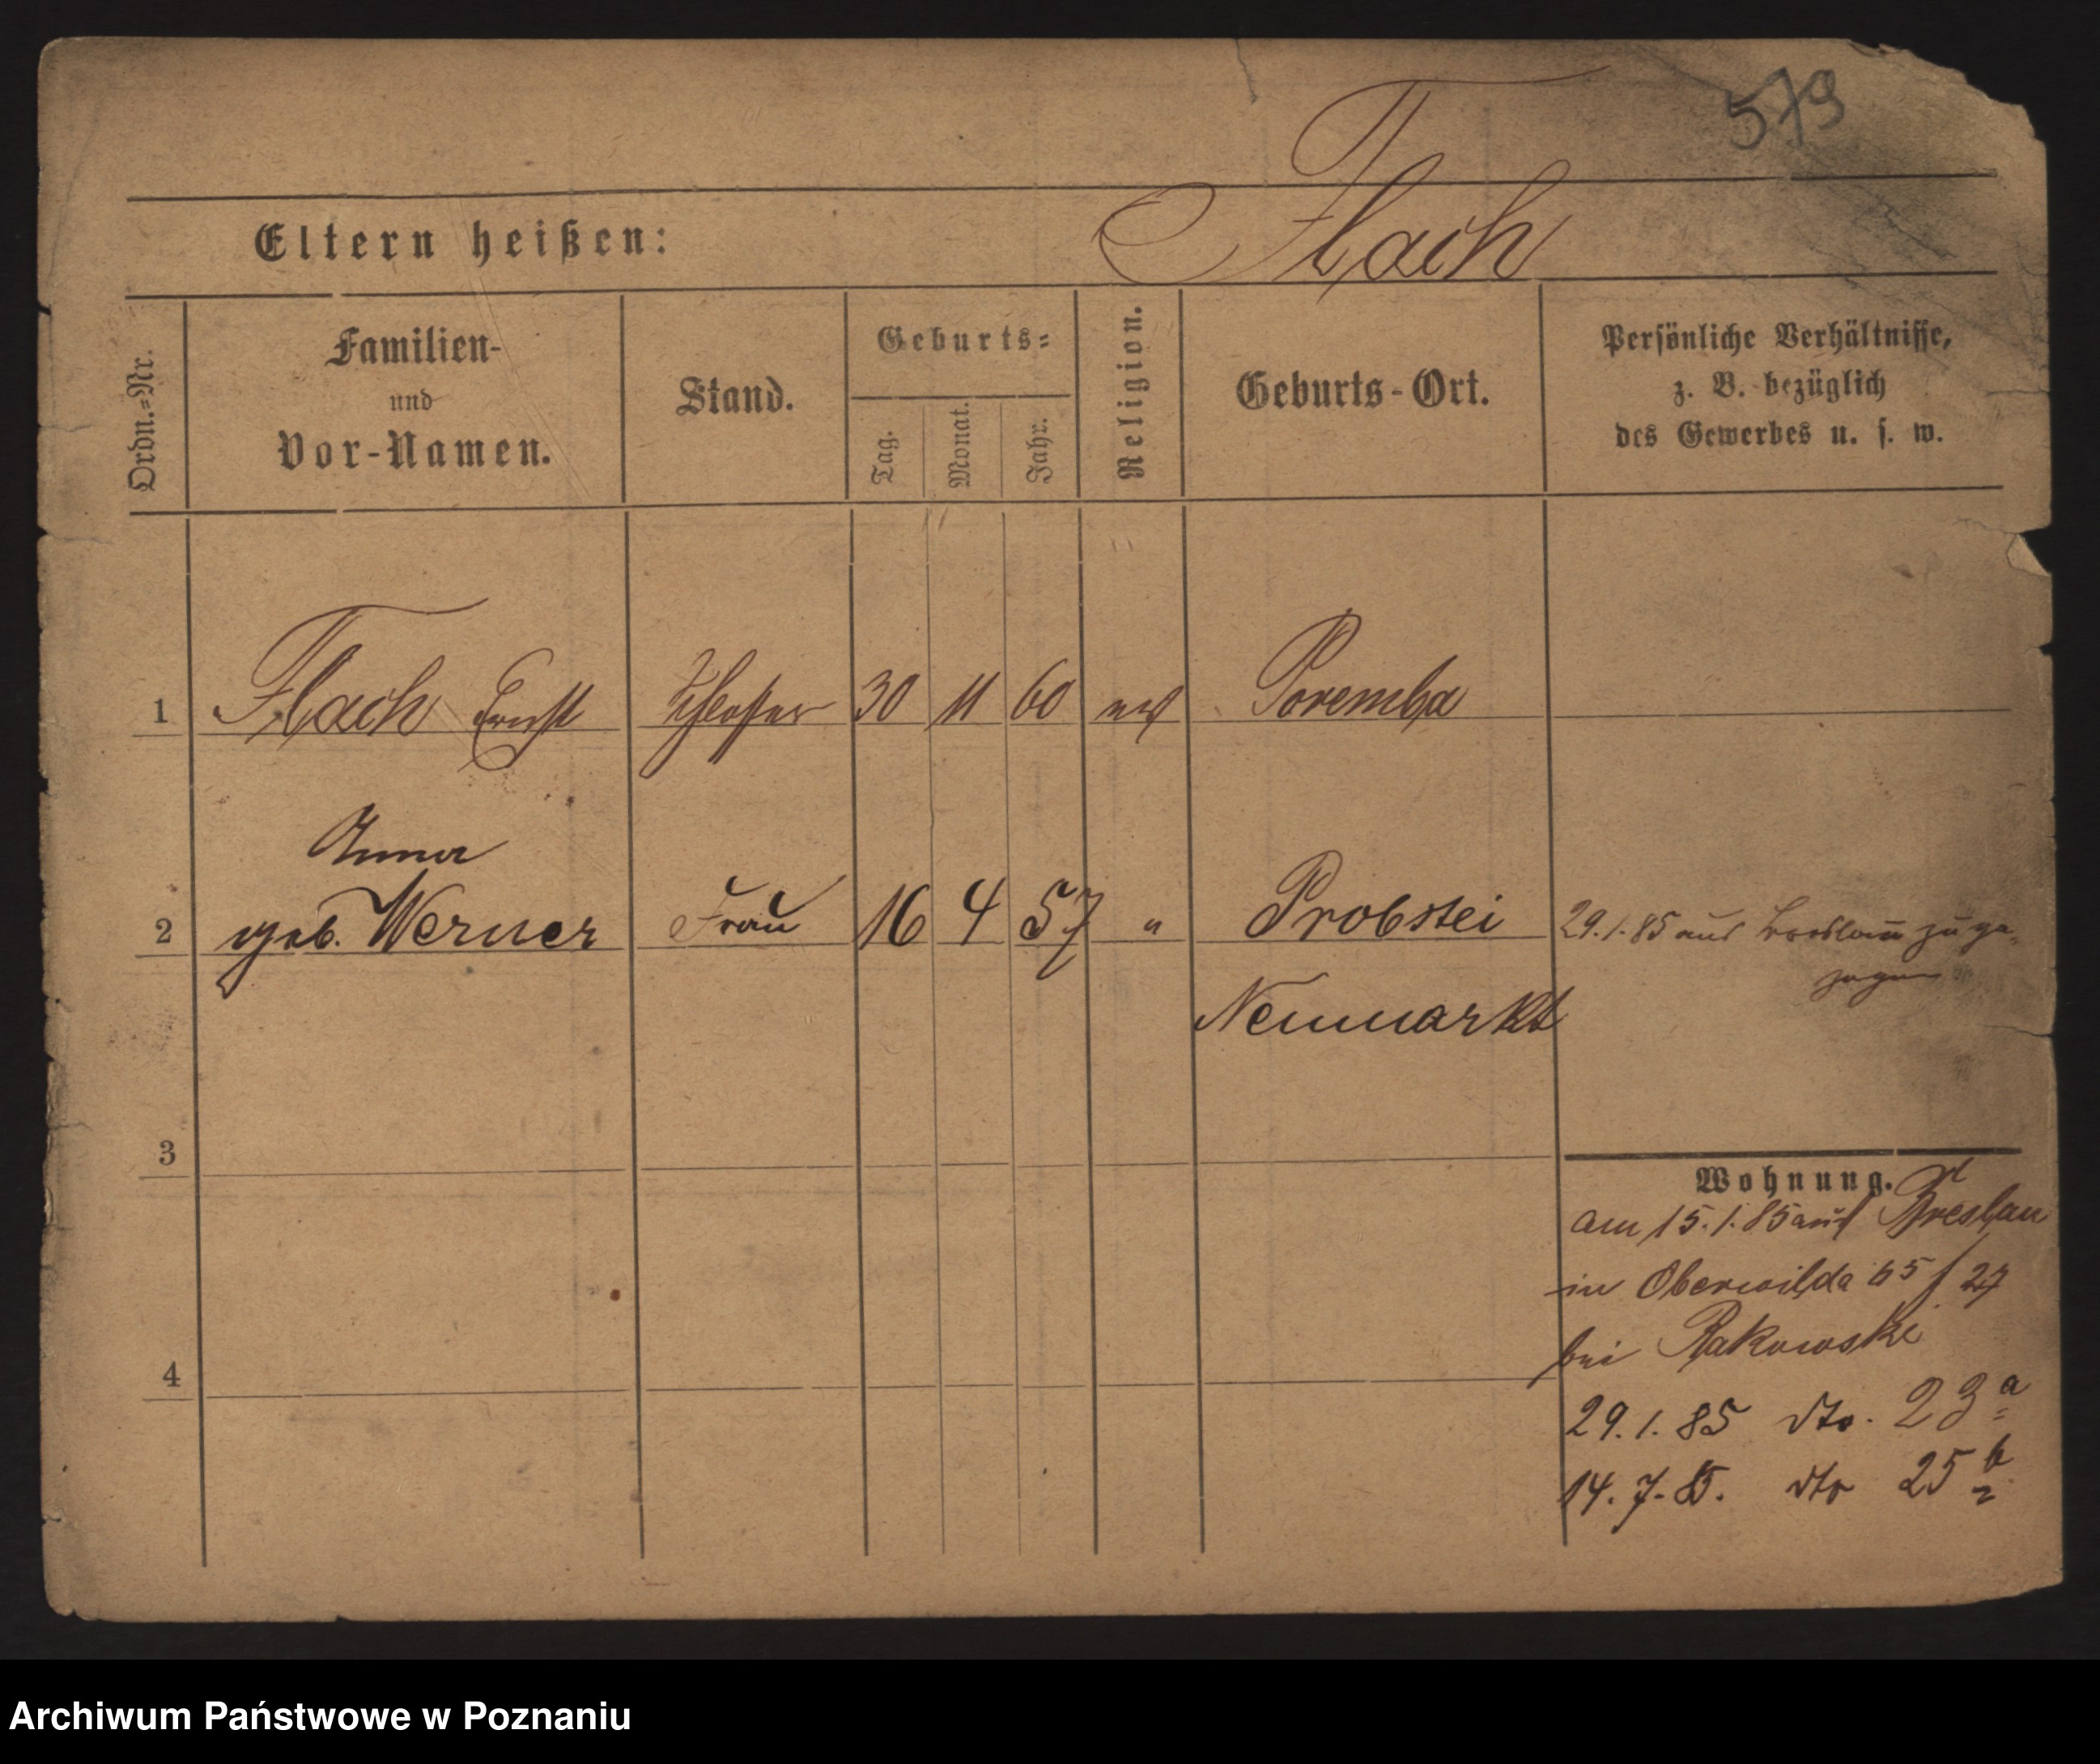 579
Flach
Eltern heißen:
Ordn.=Nr.
Familien-
und
Vor-Namen.
Stand.
Geburts=
Tag.
Monat.
Jahr.
Religion.
Geburts-Ort.
Persönliche Verhältnisse,
z. B. bezüglich
des Gewerbes u. s. w.
1 Flach Ernst Schlosser 30 11 60 ev Poremba
Anna
2 geb. Werner Frau 16 4 57 " Probstei 29.1.85 aus Breslau zuge-
zogen
Neumarkt
3
Wohnung.
am 15.1.85 aus Breslau
in Oberwilda 65/27
bei Rakowski
4
29.1.85 dto. 23a
14.7.85. dto 25b
Archiwum Państwowe w Poznaniu